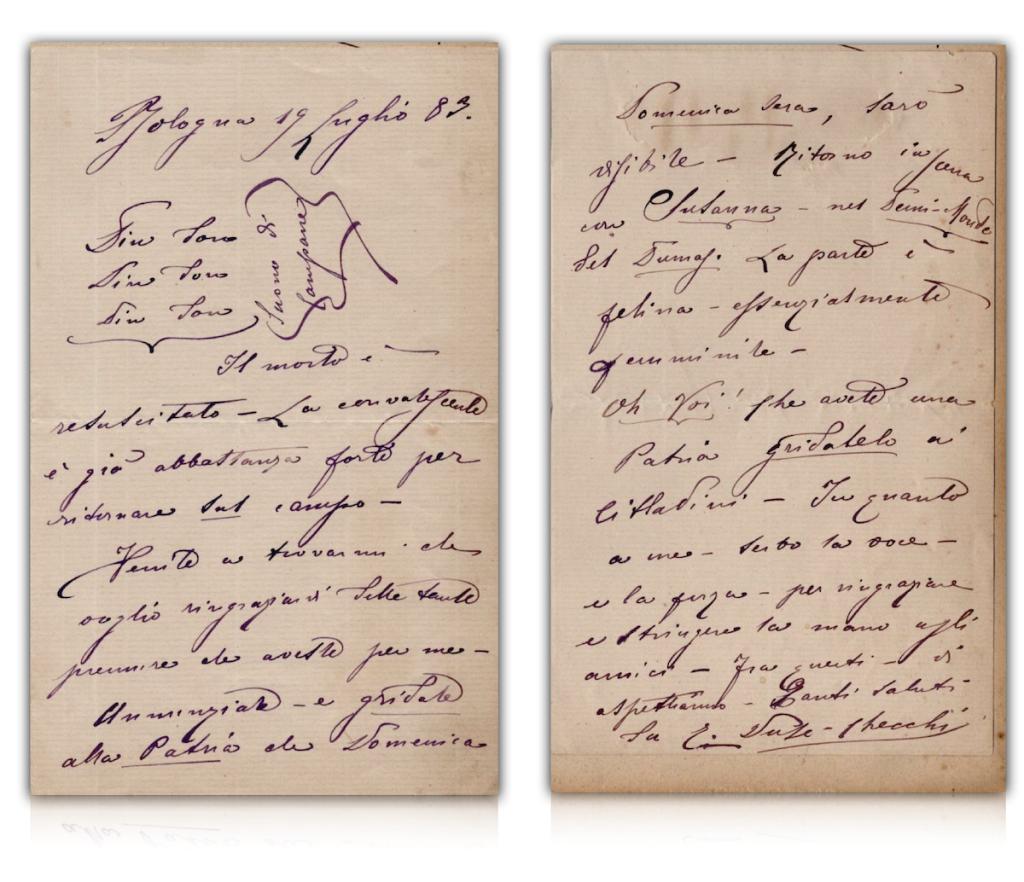 Bologna 19 Luglio 83.
Din Don
Din Don
Din Don
Suono di
Campane
Il morto è
resuscitato – La convalescente
è già abbastanza forte per
ritornare sul campo –
Venite a trovarmi che
voglio ringraziarvi delle tante
premure che aveste per me –
Annunziate – e gridate
alla Patria che Domenica
Domenica sera, sarò
visibile – Ritorno in scena
con Susanna – nel Demi-Monde
del Dumas. La parte è
felina – essenzialmente
femminile –
Oh Voi! che avete una
Patria gridatelo a'
Cittadini – In quanto
a me – serbo la voce –
e la forza – per ringraziare
e stringere la mano agli
amici – Fra questi – vi
aspettiamo – Tanti saluti
La E. Duse-Checchi